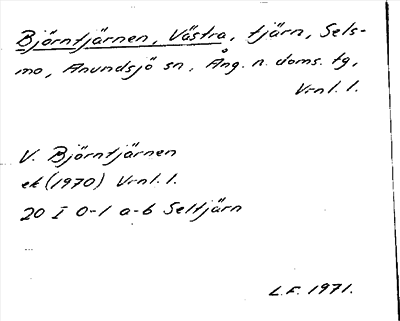 Björntjärnen, Västra, tjärn, Sels-
mo, Anundsjö sn, Ång. n. doms. tg,
Vrnl. l.
V. Björntjärnen
ek (1970) Vrnl. l.
20 I 0-1 a-b Seltjärn
L.F. 1971.